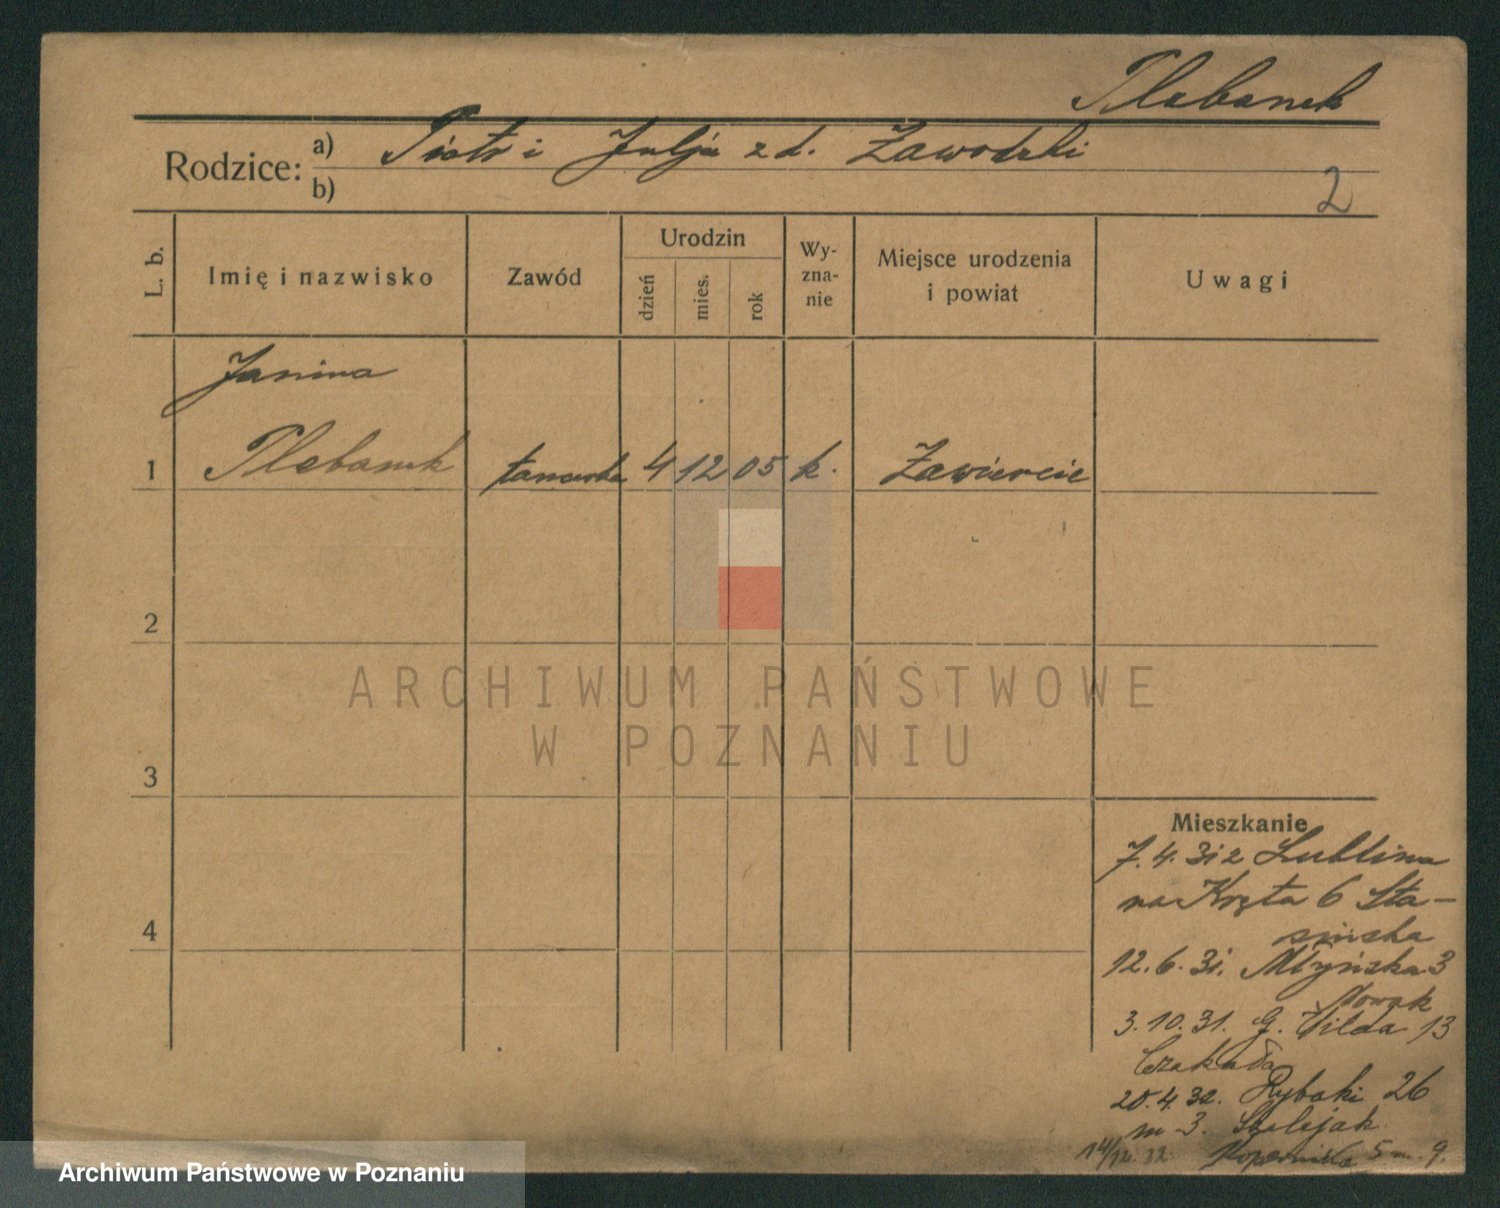 Plebanek
Rodzice: a) Piotr i Julja z d. Zawodzki
b)
2
L. b.
Imię i nazwisko
Zawód
Urodzin
dzień
mies.
rok
Wy-
zna-
nie
Miejsce urodzenia
i powiat
Uwagi
Janina
1 Plebanek tancerka 4 12 05 k. Zawiercie
2
ARCHIWUM PAŃSTWOWE
W POZNANIU
3
4
Mieszkanie
7.4.31 z Lublina
na Kręta 6 Sta-
sińska
12.6.31. Młyńska 3
Nowak
3.10.31. G. Wilda 13
20.4.32. Rybaki 26
m 3. Szelejak
14/12.32 Kopernika 5 m. 9.
Archiwum Państwowe w Poznaniu